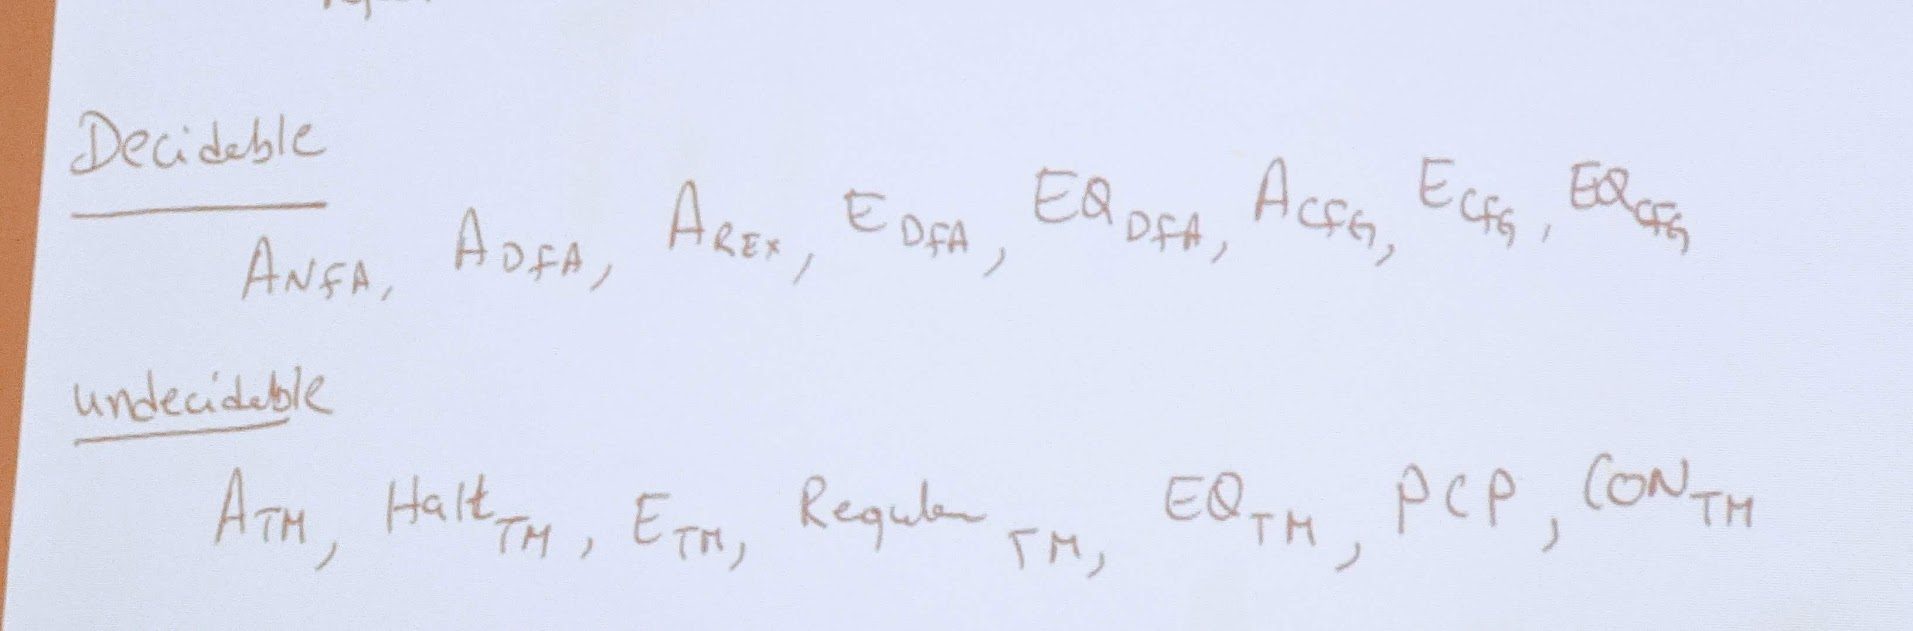 Decidable
A NFA, A DFA, A REX, E DFA, EQ DFA, A CFG, E CFG, EQ CFG
undecidable
A TM, Halt TM, E TM, Regular TM, EQ TM, PCP, CON TM